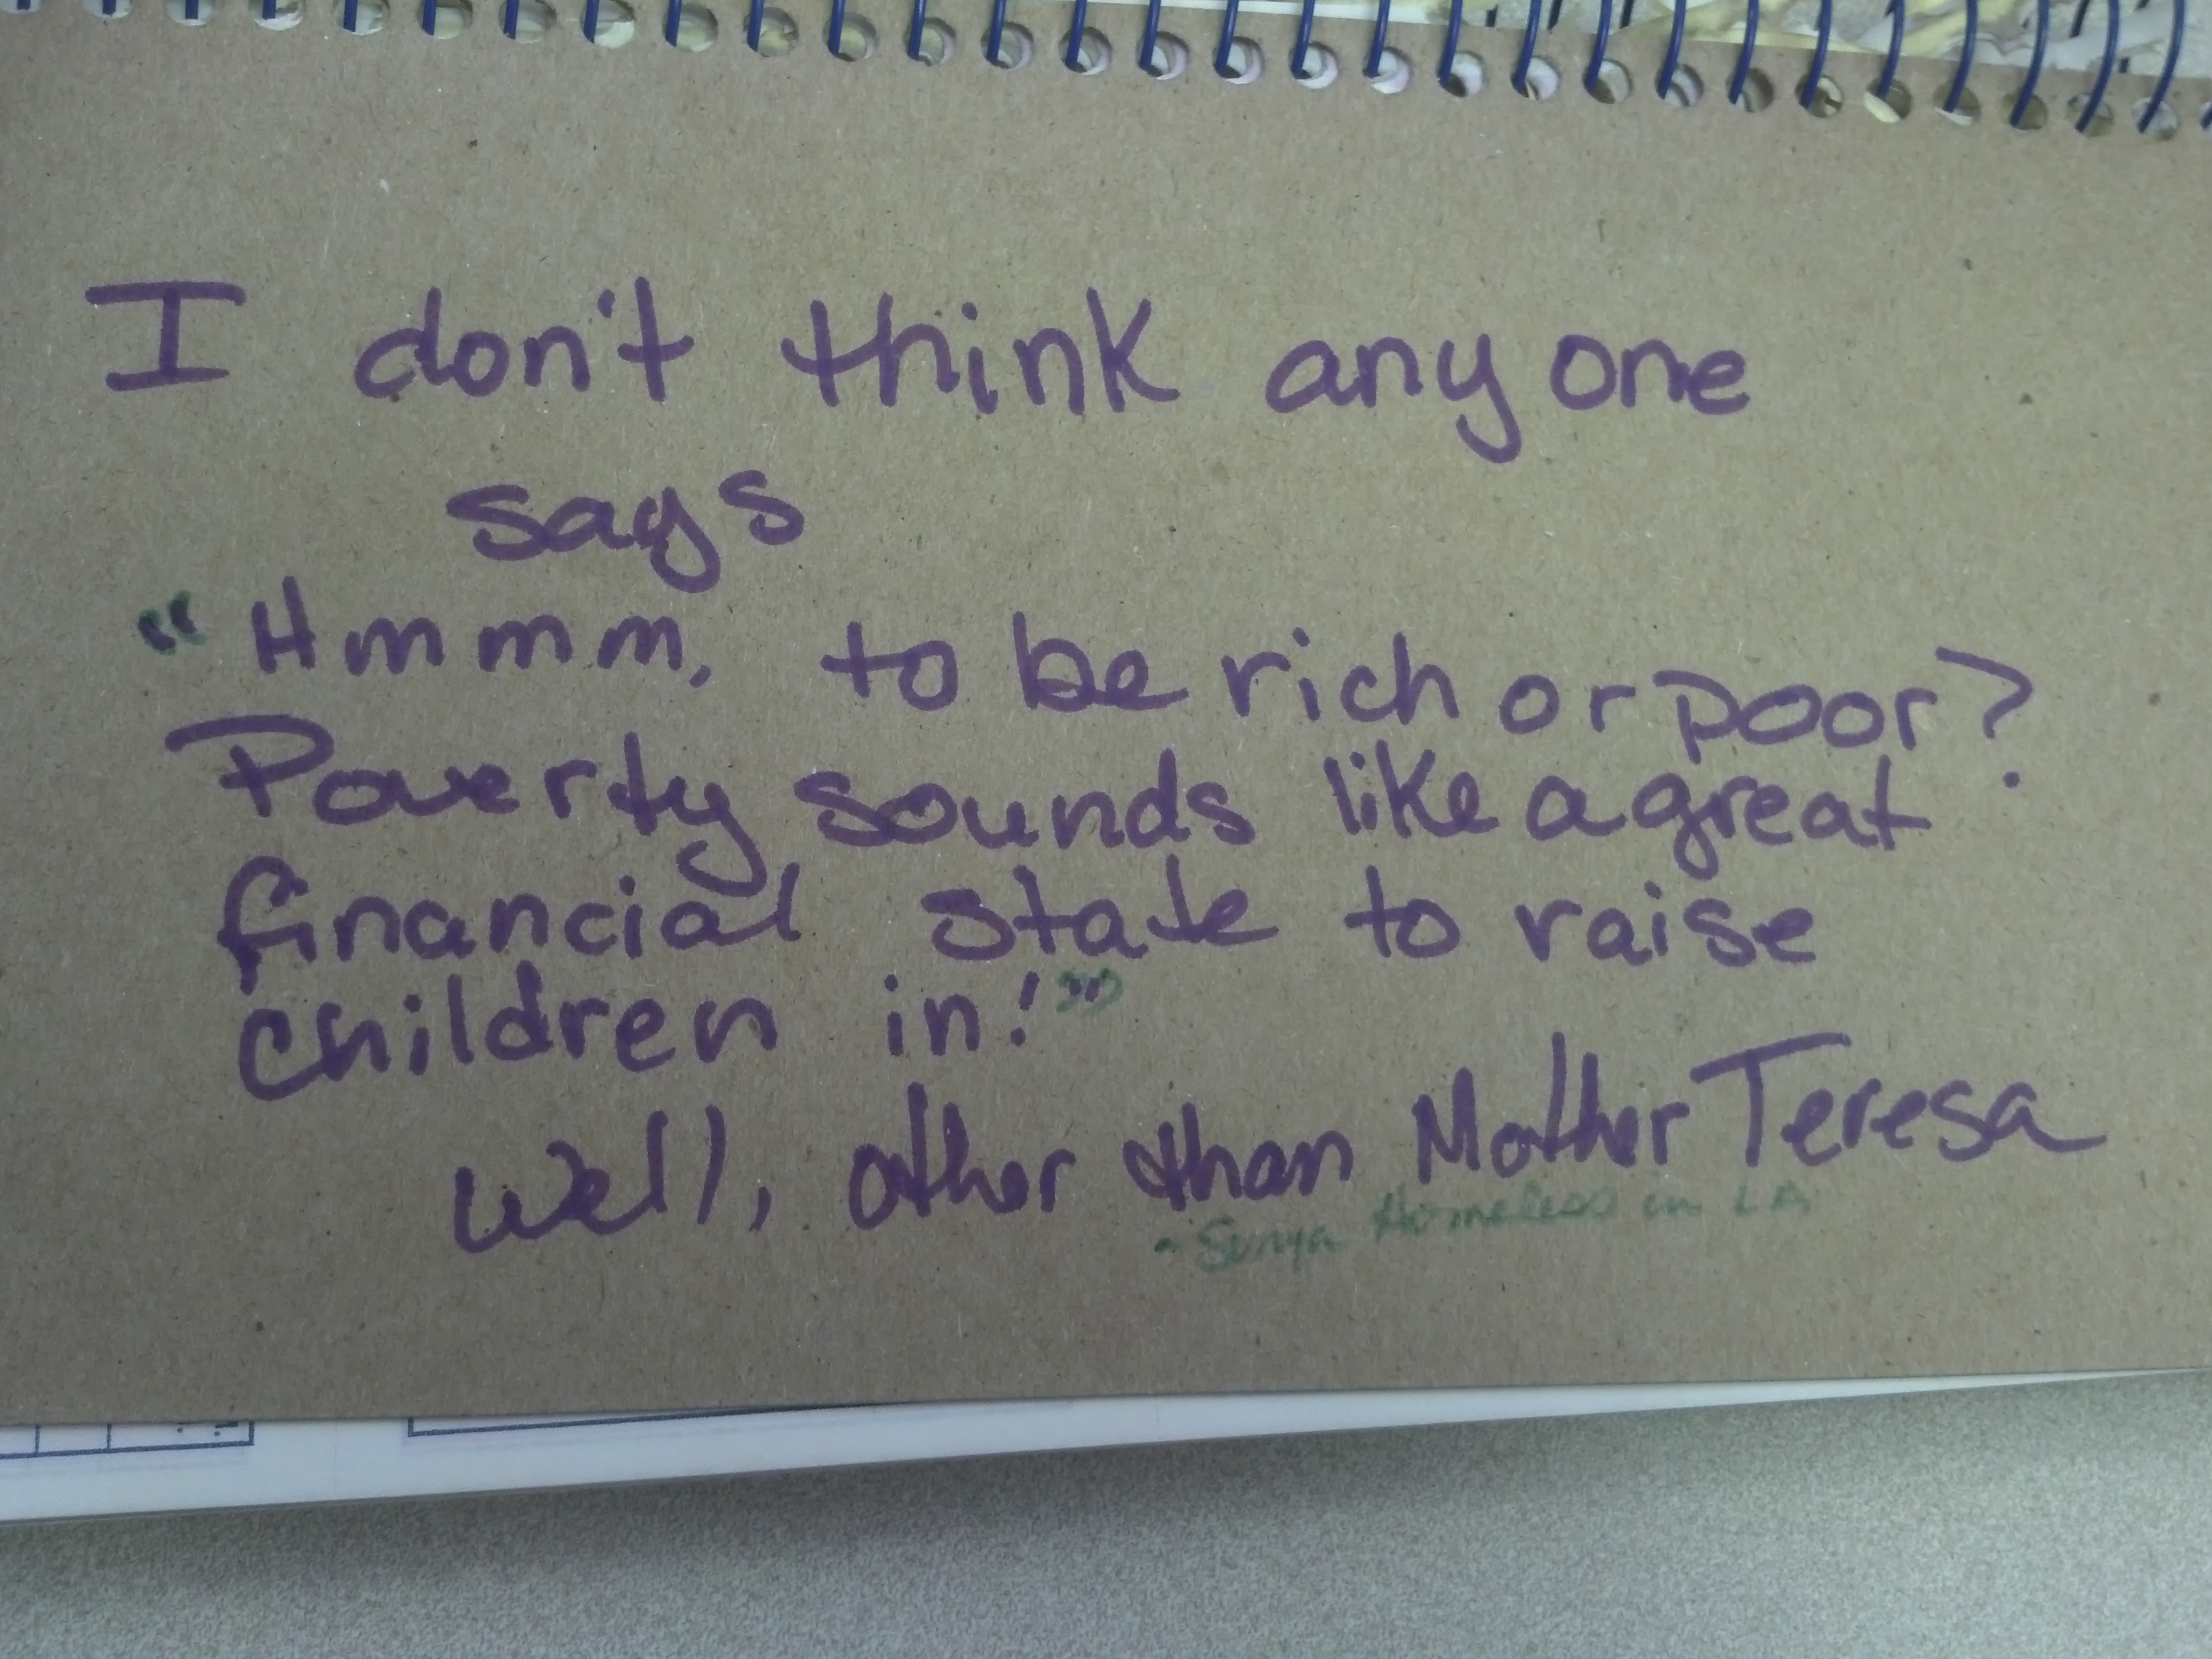 I don't think anyone
says
“Hmmm, to be rich or poor?
Poverty sounds like a great
financial state to raise
children in!”
Well, other than Mother Teresa
- Sunya Homeless in LA